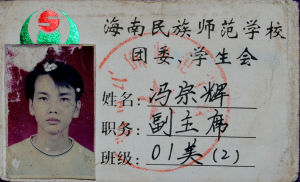 海南民族师范学校
团委、学生会
姓名：冯宗辉
职务：副主席
班级：01美（2）